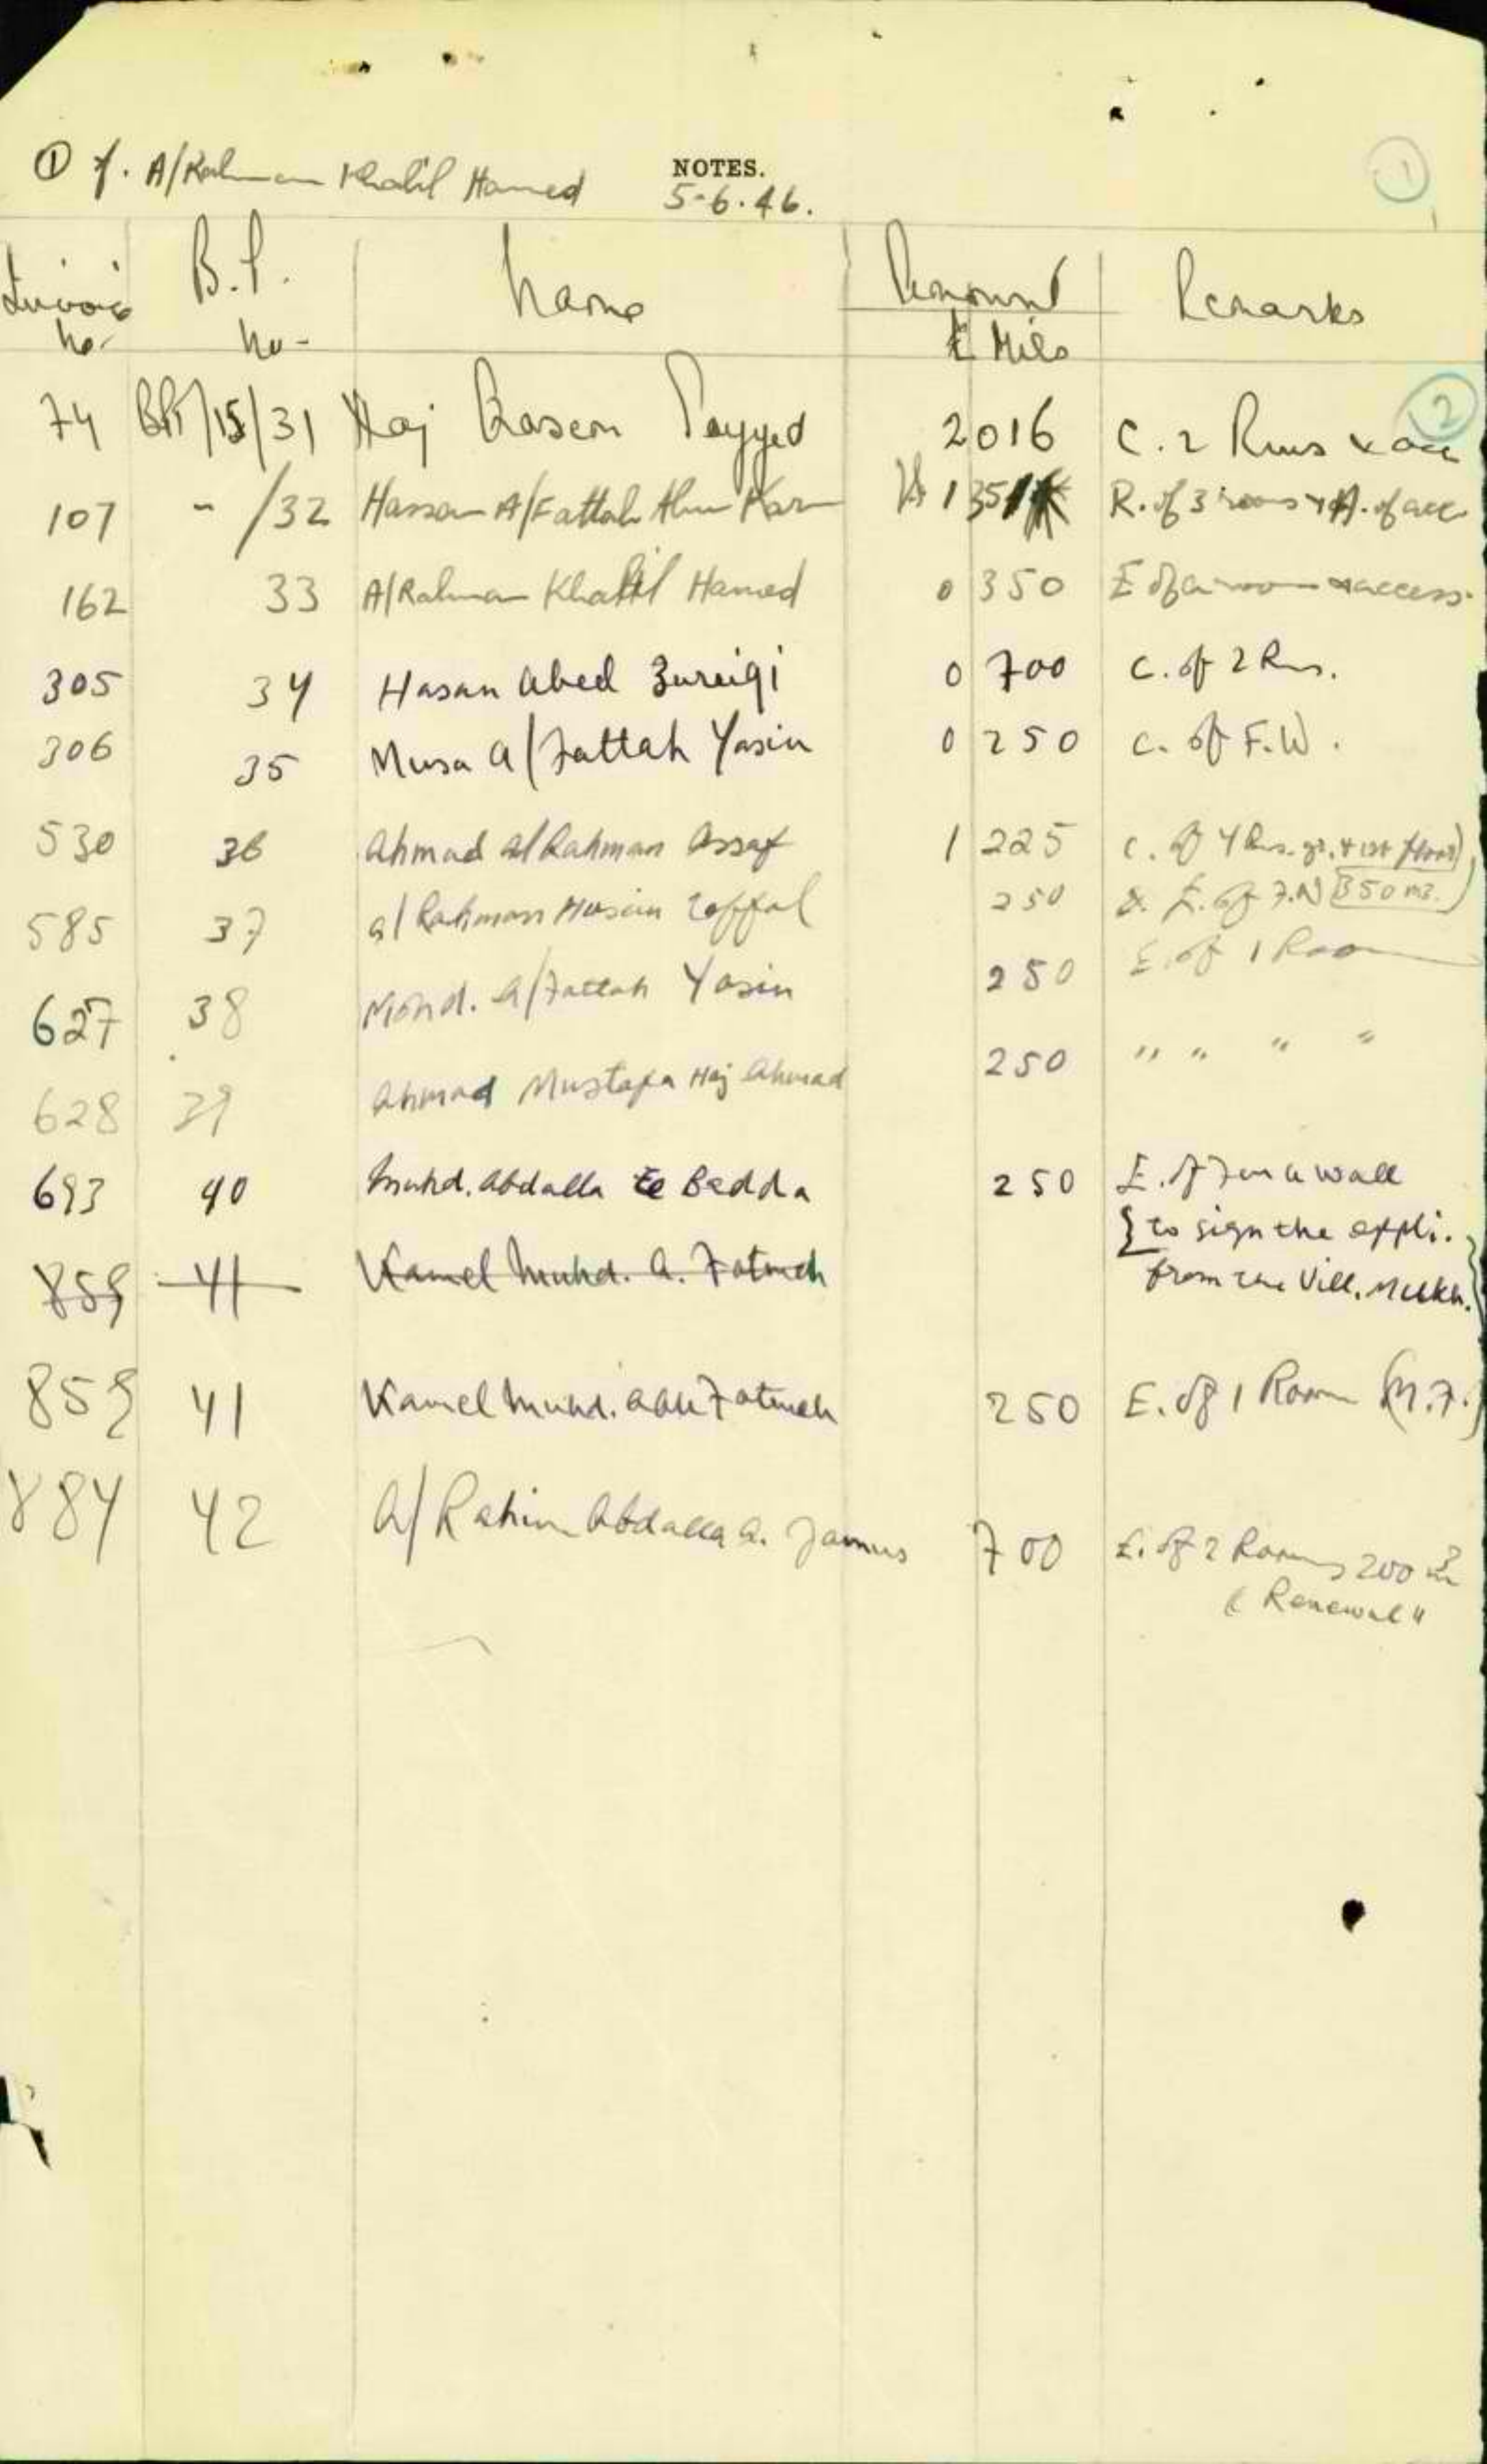 ① f. A/Rahman Khalil Hamed NOTES. 1
5-6.46.
B.P. Name Amount Remarks
No. No- £ Mils
74 /15/31 Haj Qasem Sayyed 2016 C. 2 Rms & acc 2
107 - /32 Hassan A/Fattah 1 35 R. of 3 rooms & A. of acc
162 33 A/Rahman Khalil Hamed 0 350 E of a room & access.
305 34 Hasan Abed Zureiqi 0 700 C. of 2 Rms.
306 35 Musa A/Fattah Yasin 0 250 C. of F.W.
530 36 Ahmad A/Rahman Assaf 1 225 C. of 4 Rms. gr. & 1st floor)
585 37 A/Rahman Husein 250 & E. of F.W 350 m3.)
627 38 Mohd. A/Fattah Yasin 250 E. of 1 Room
628 39 Ahmad Mustafa Haj Ahmad 250 " " " "
693 40 Muhd. Abdalla Bedda 250 E. of a wall
{to sign the appli.
859 41 Kamel Muhd. A. Fatmeh from the Vill. Mukh.}
859 41 Kamel Muhd. Abu Fatmeh 250 E. of 1 Room
884 42 A/Rahim Abdalla A. Jamus 700 E. of 2 Rooms 200 m2
"Renewal"